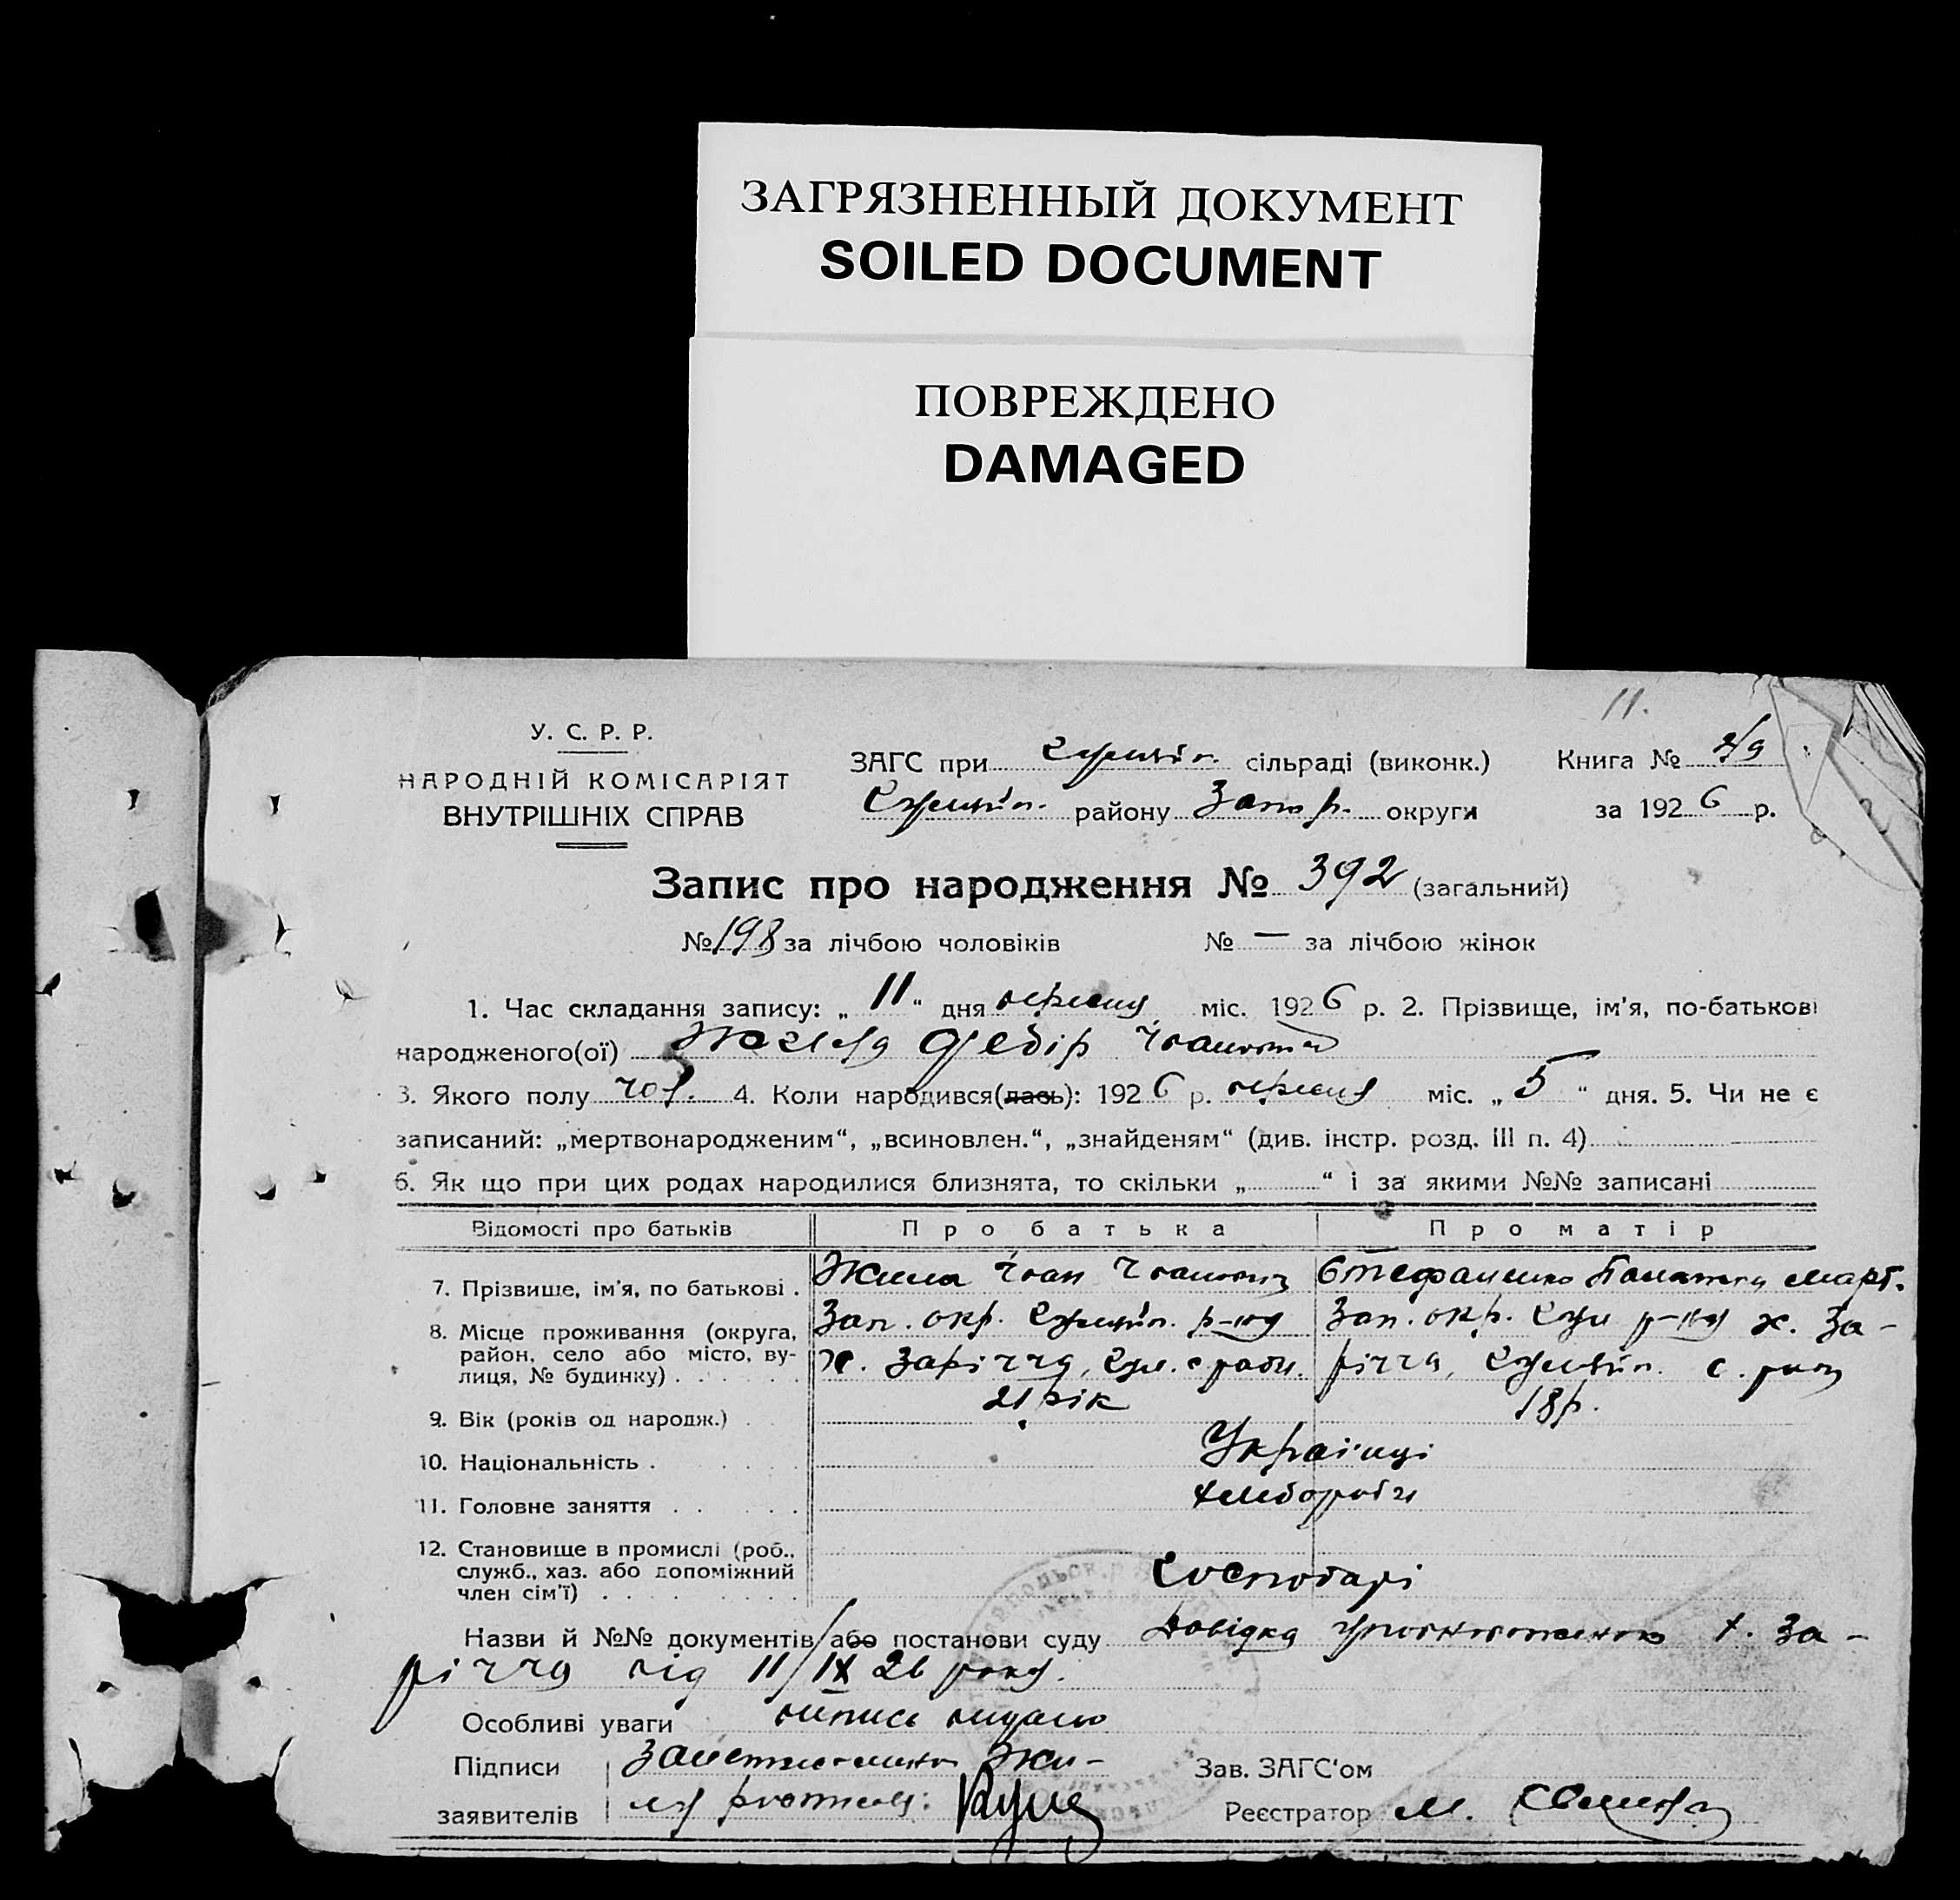 ЗАГРЯЗНЕННЫЙ ДОКУМЕНТ
SOILED DOCUMENT
ПОВРЕЖДЕНО
DAMAGED
11.
У. С. Р. Р.
НАРОДНІЙ КОМІСАРІЯТ
ВНУТРІШНІХ СПРАВ
ЗАГС при сільраді (виконк.)
Книга №
району Запор. округи
за 1926 р.
Запис про народження № 392 (загальний)
№ 198 за лічбою чоловіків № — за лічбою жінок
1. Час складання запису: „ 11 “ дня вересня міс. 1926 р. 2. Прізвище, ім'я, по-батькові
народженого(ої) Жила Федір Іванович
3. Якого полу чол. 4. Коли народився(лась): 1926 р. вересня міс. „ 5 “ дня. 5. Чи не є
записаний: „мертвонародженим“, „всиновлен.“, „знайденям“ (див. інстр. розд. III п. 4)
6. Як що при цих родах народилися близнята, то скільки „ “ і за якими №№ записані
Відомості про батьків Про батька Про матір
7. Прізвище, ім'я, по батькові . Жила Іван Іванович Стефаненко Март.
8. Місце проживання (округа, район, село або місто, вулиця, № будинку) Зап. окр. р-ну Зап. окр. р-ну х. За-
х. Заріччя, с. ради. річчя, с. ради
9. Вік (років од народж.) 21 рік 18 р.
10. Національність . Українці
11. Головне заняття . . . хлібороби
12. Становище в промислі (роб., служб., хаз. або допоміжний член сім'ї) Господарі
Назви й №№ документів/або постанови суду Довідка уповноваженого х. За-
річчя від 11/IX 26 року.
Особливі уваги випись видано
Підписи заявителів Жи-
ли
Зав. ЗАГС'ом
Реєстратор М.